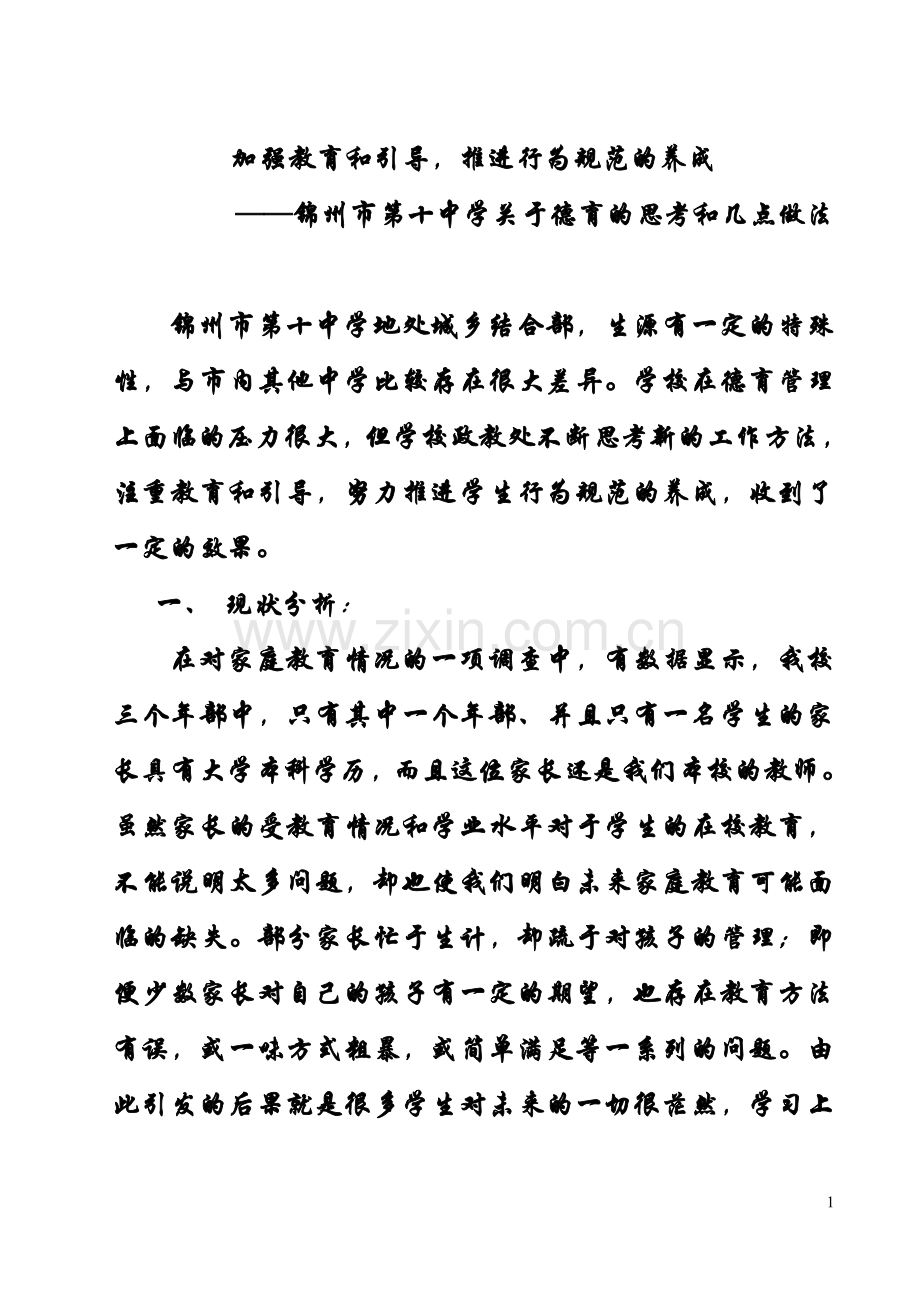 加强教育和引导，推进行为规范的养成
——锦州市第十中学关于德育的思考和几点做法
锦州市第十中学地处城乡结合部，生源有一定的特殊
性，与市内其他中学比较存在很大差异。学校在德育管理
上面临的压力很大，但学校政教处不断思考新的工作方法，
注重教育和引导，努力推进学生行为规范的养成，收到了
一定的效果。
一、 现状分析：
www.zixin.com.cn
在对家庭教育情况的一项调查中，有数据显示，我校
三个年部中，只有其中一个年部、并且只有一名学生的家
长具有大学本科学历，而且这位家长还是我们本校的教师。
虽然家长的受教育情况和学业水平对于学生的在校教育，
不能说明太多问题，却也使我们明白未来家庭教育可能面
临的缺失。部分家长忙于生计，却疏于对孩子的管理；即
便少数家长对自己的孩子有一定的期望，也存在教育方法
有误，或一味方式粗暴，或简单满足等一系列的问题。由
此引发的后果就是很多学生对未来的一切很茫然，学习上
1